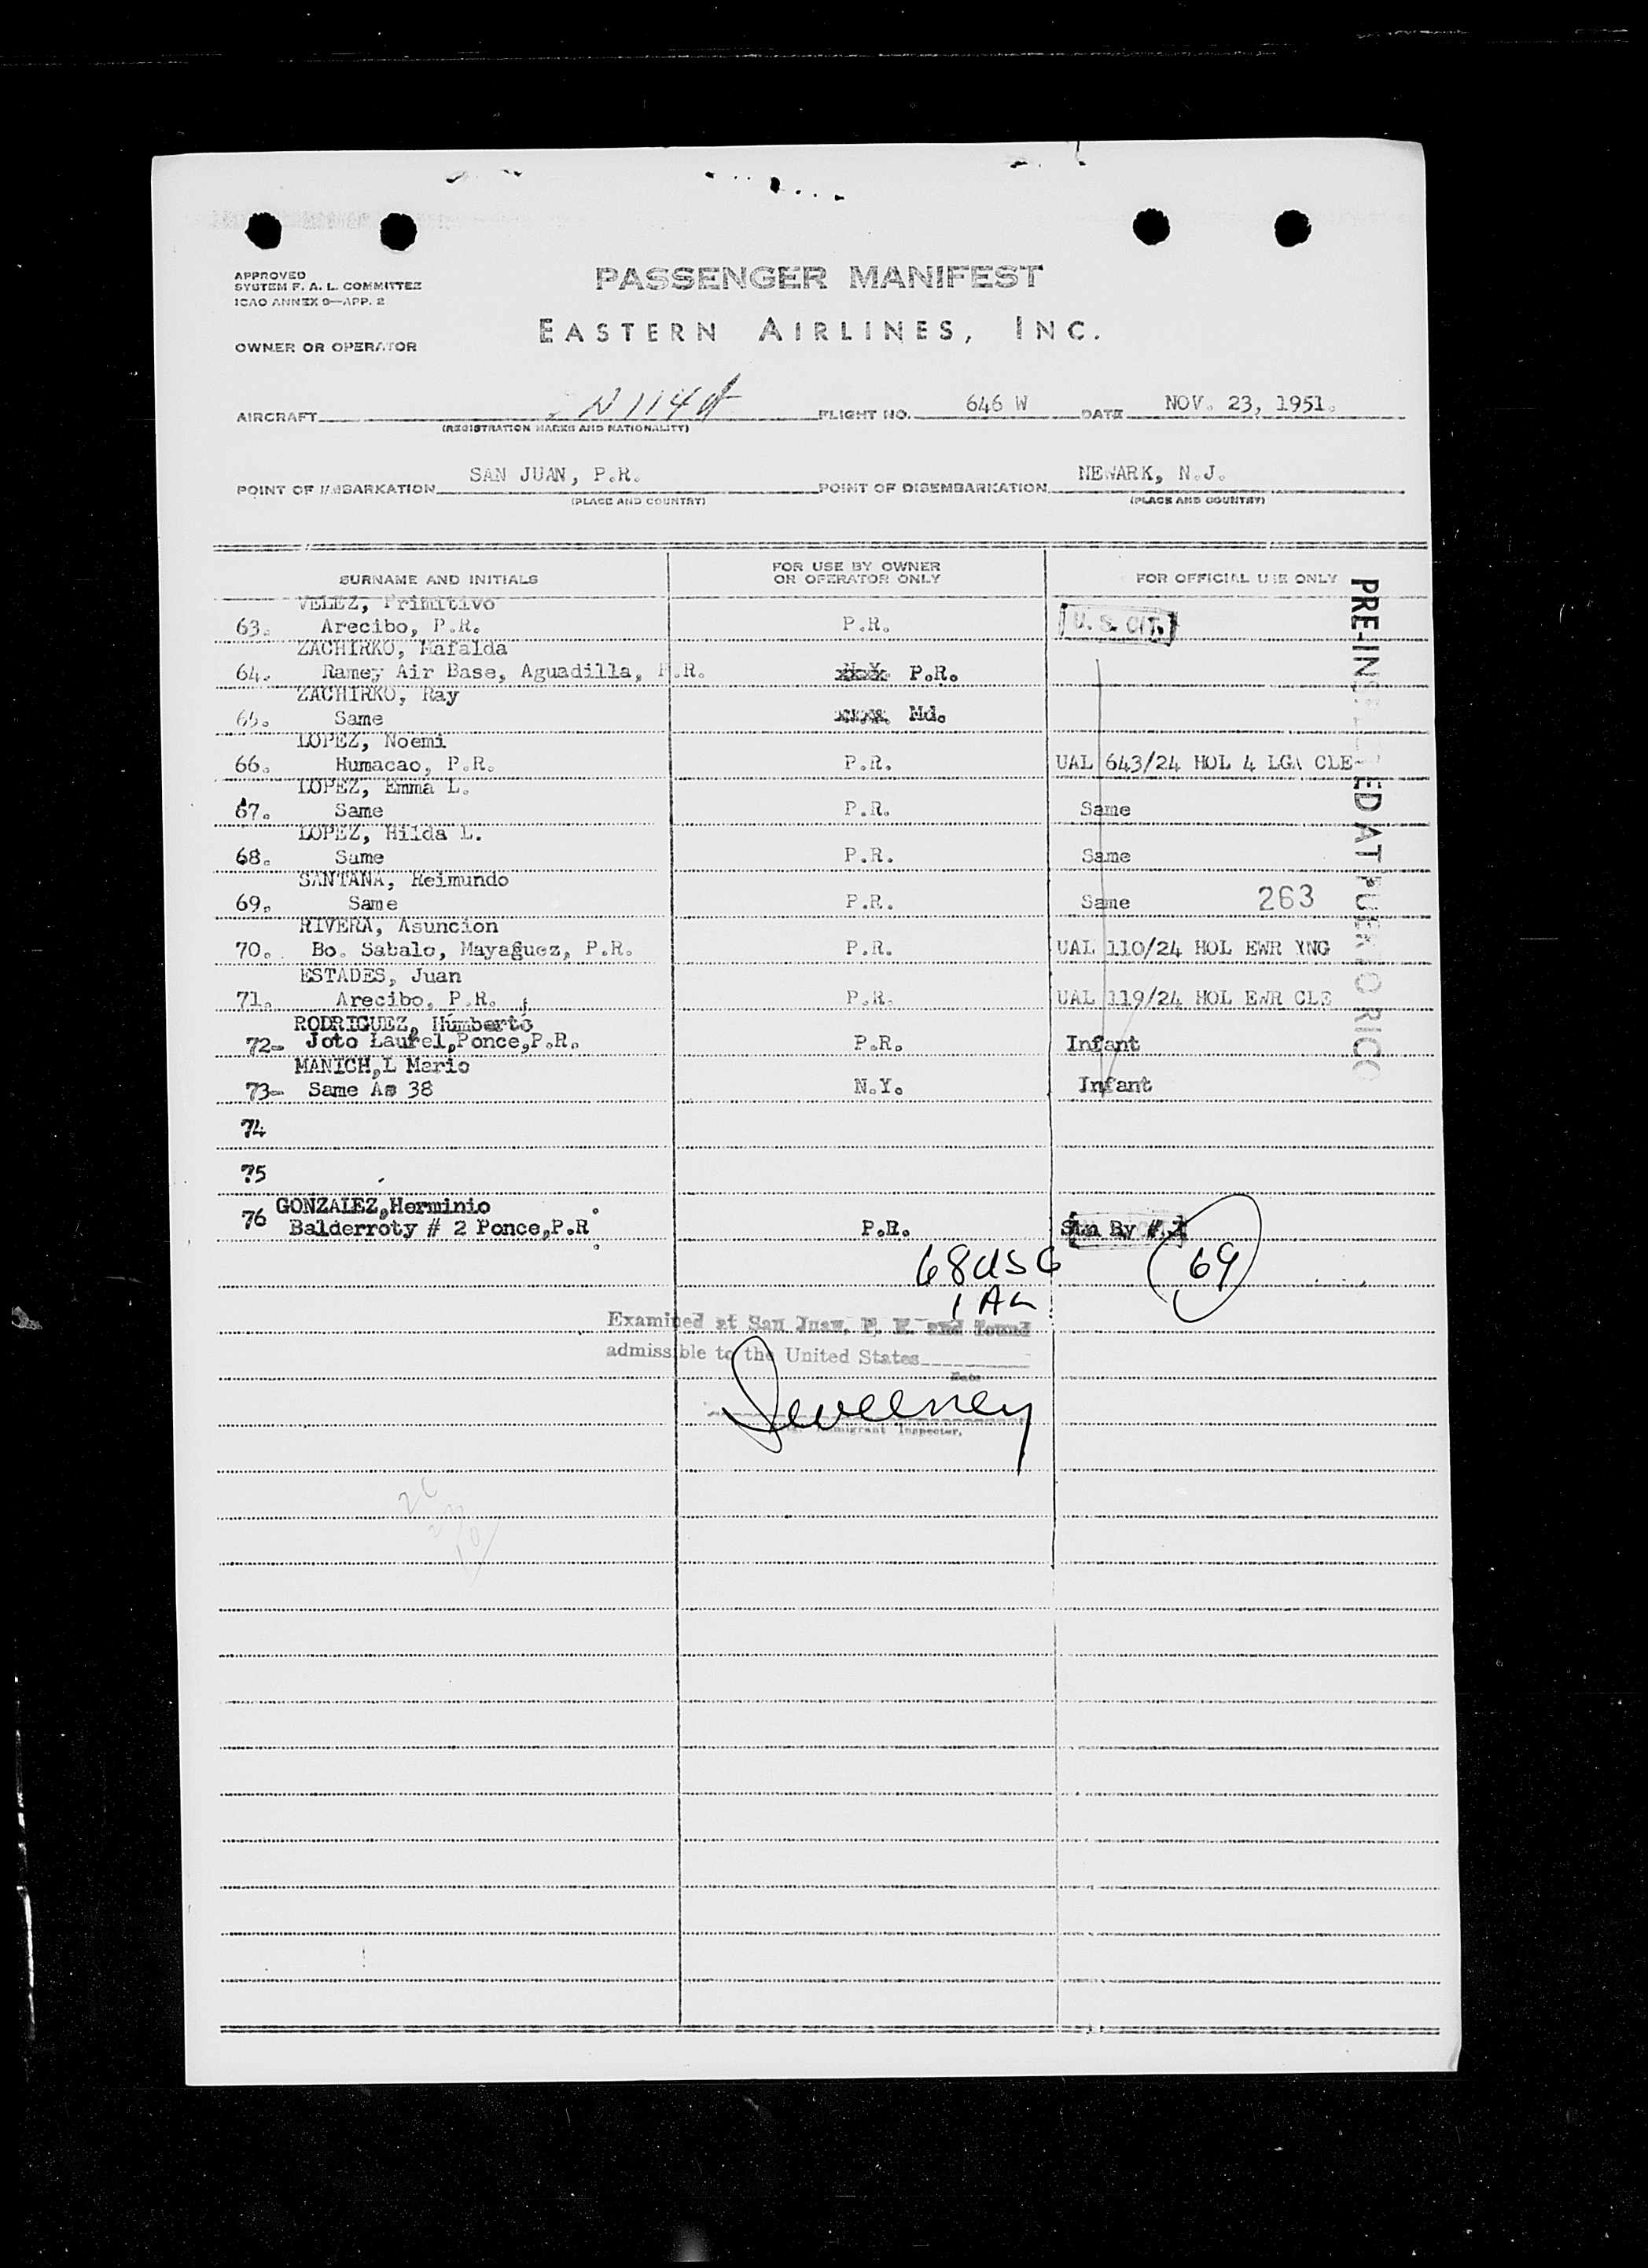 APPROVED
SYSTEM F. A. L. COMMITTEE
ICAO ANNEX 9—APP. 2
PASSENGER MANIFEST
OWNER OR OPERATOR
EASTERN AIRLINES, INC.
AIRCRAFT N114 FLIGHT NO. 646 W DATE NOV. 23, 1951.
(REGISTRATION MARKS AND NATIONALITY)
POINT OF EMBARKATION SAN JUAN, P.R. POINT OF DISEMBARKATION NEWARK, N.J.
(PLACE AND COUNTRY) (PLACE AND COUNTRY)
SURNAME AND INITIALS FOR USE BY OWNER OR OPERATOR ONLY FOR OFFICIAL USE ONLY
VELEZ, Primitivo
63. Arecibo, P.R. P.R. U. S. CIT.
ZACHIRKO, Mafalda
64. Ramey Air Base, Aguadilla, P.R. P.R.
ZACHIRKO, Ray
65. Same Md.
LOPEZ, Noemi
66. Humacao, P.R. P.R. UAL 643/24 HOL 4 LGA CLE
LOPEZ, Emma L.
67. Same P.R. Same
LOPEZ, Hilda L.
68. Same P.R. Same
SANTANA, Reimundo
69. Same P.R. Same 263
RIVERA, Asuncion
70. Bo. Sabalo, Mayaguez, P.R. P.R. UAL 110/24 HOL EWR YNG
ESTADES, Juan
71. Arecibo, P.R. P.R. UAL 119/24 HOL EWR CLE
RODRIGUEZ, Humberto
72- Joto Laurel,Ponce,P.R. P.R. Infant
MANICH,L Mario
73- Same As 38 N.Y. Infant
74
75
GONZALEZ,Herminio
76 Balderroty # 2 Ponce,P.R P.R. By
68 USC 69
1 AL
Examined at San Juan, P. R. and found
admissible to the United States
Date
Sweeney
Immigrant Inspector.
PRE-INSPECTED AT PUERTO RICO